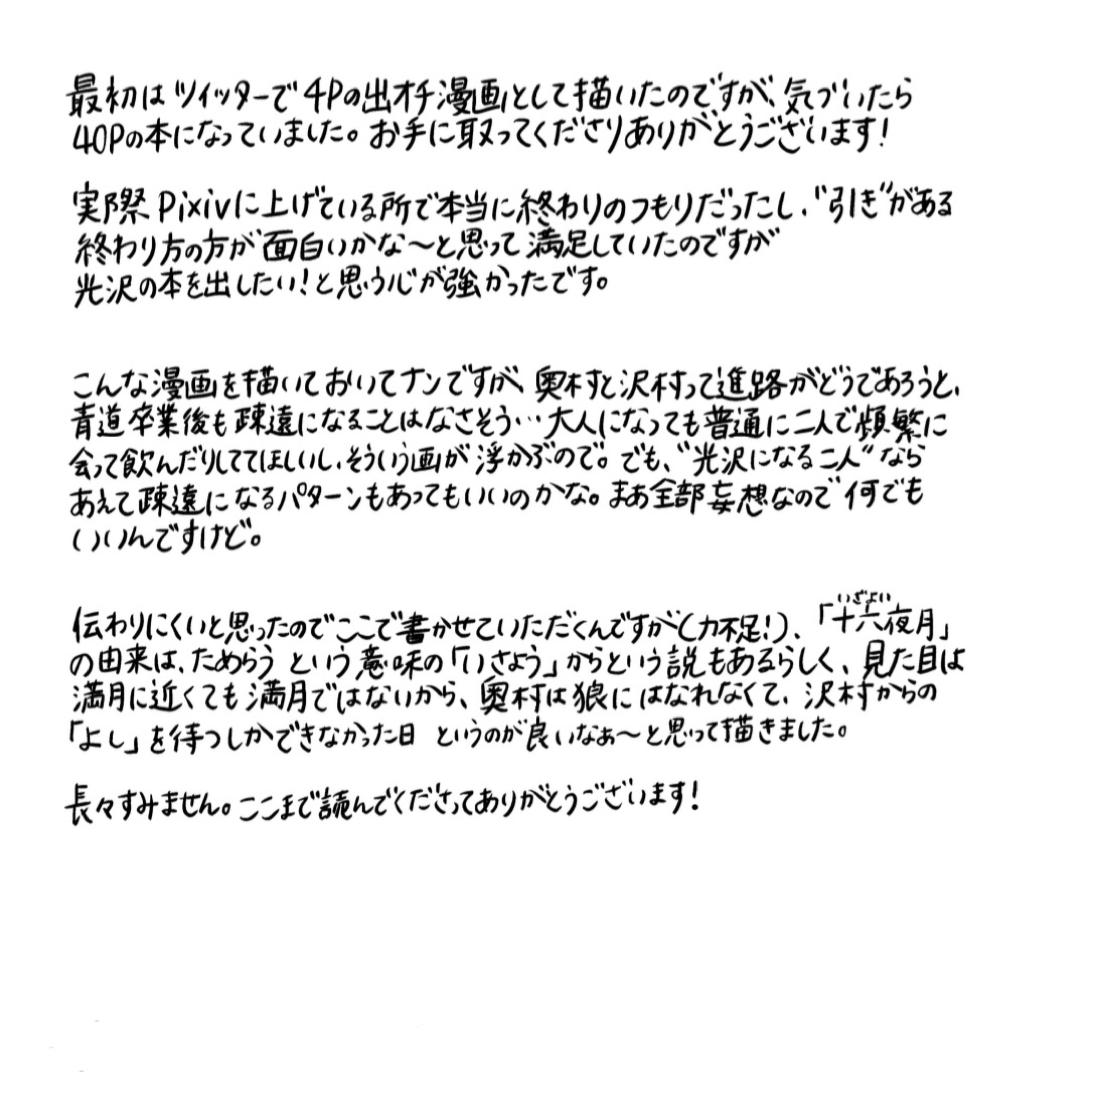 最初はツイッターで4Pの出オチ漫画として描いたのですが、気づいたら
40Pの本になっていました。お手に取ってくださりありがとうございます!
実際Pixivに上げている所で本当に終わりのつもりだったし、“引き”がある
終わり方の方が面白いかな〜と思って満足していたのですが
光沢の本を出したい!と思う心が強かったです。
こんな漫画を描いておいてナンですが、奥村と沢村って進路がどうであろうと、
青道卒業後も疎遠になることはなさそう…大人になっても普通に二人で頻繁に
会って飲んだりしててほしいし、そういう画が浮かぶので。でも、“光沢になる二人”なら
あえて疎遠になるパターンもあってもいいのかな。まあ全部妄想なので何でも
いいんですけど。
伝わりにくいと思ったのでここで書かせていただくんですが(力不足!)、「十六夜月」
いざよい
の由来は、ためらうという意味の「いさよう」からという説もあるらしく、見た目は
満月に近くても満月ではないから、奥村は狼にはなれなくて、沢村からの
「よし」を待つしかできなかった日 というのが良いなぁ〜と思って描きました。
長々すみません。ここまで読んでくださってありがとうございます!